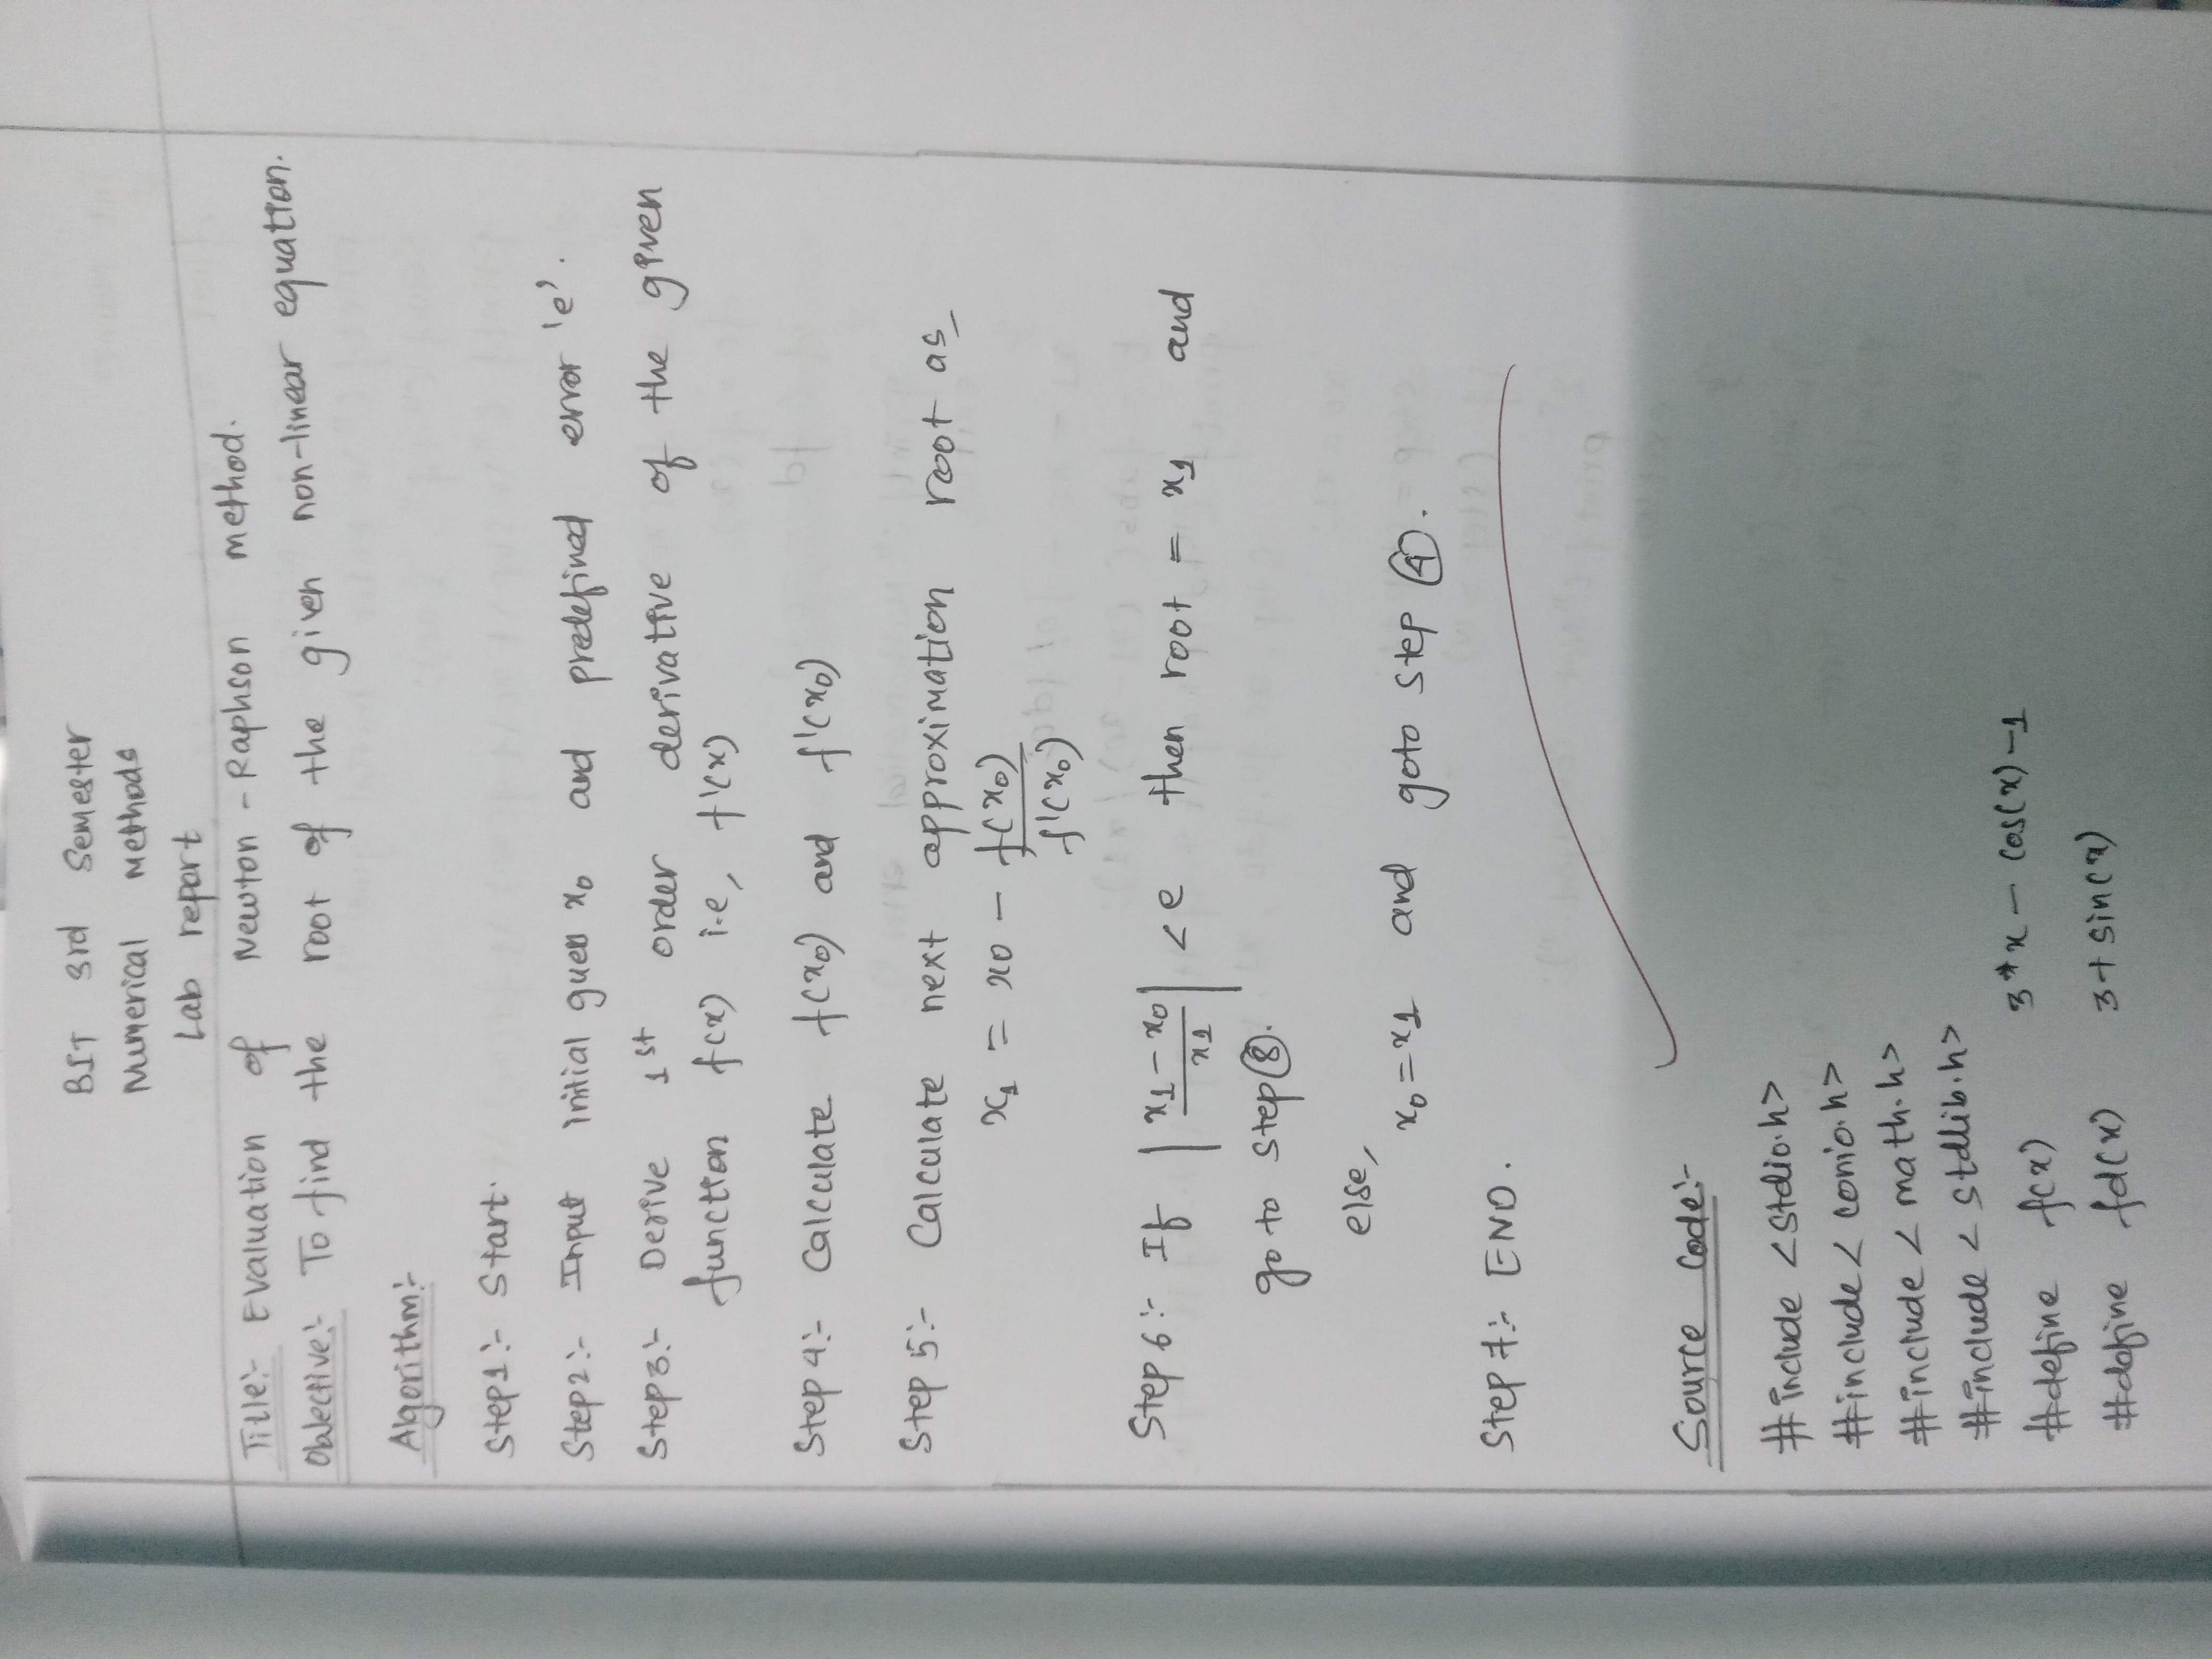 BIT 3rd Semester
Numerical Methods
Lab report
Title:- Evaluation of Newton-Raphson method.
Objective:- To find the root of the given non-linear equation.
Algorithm:-
Step1:- Start.
Step2:- Input initial guess x₀ and predefined error 'e'.
Step3:- Derive 1st order derivative of the given
function f(x) i.e, f'(x)
Step 4:- Calculate f(x₀) and f'(x₀)
Step 5:- Calculate next approximation root as,
x₁ = x0 - f(x₀)
f'(x₀)
Step 6:- If | x1 - x₀ / x1 | < e then root = x1 and
go to step ⑧.
else,
x₀ = x1 and goto step ④.
Step 7:- END.
Source Code:-
#include <stdio.h>
#include < conio.h>
#include < math.h>
#include < stdlib.h>
#define f(x) 3*x - cos(x) -1
#define fd(x) 3+ sin(x)